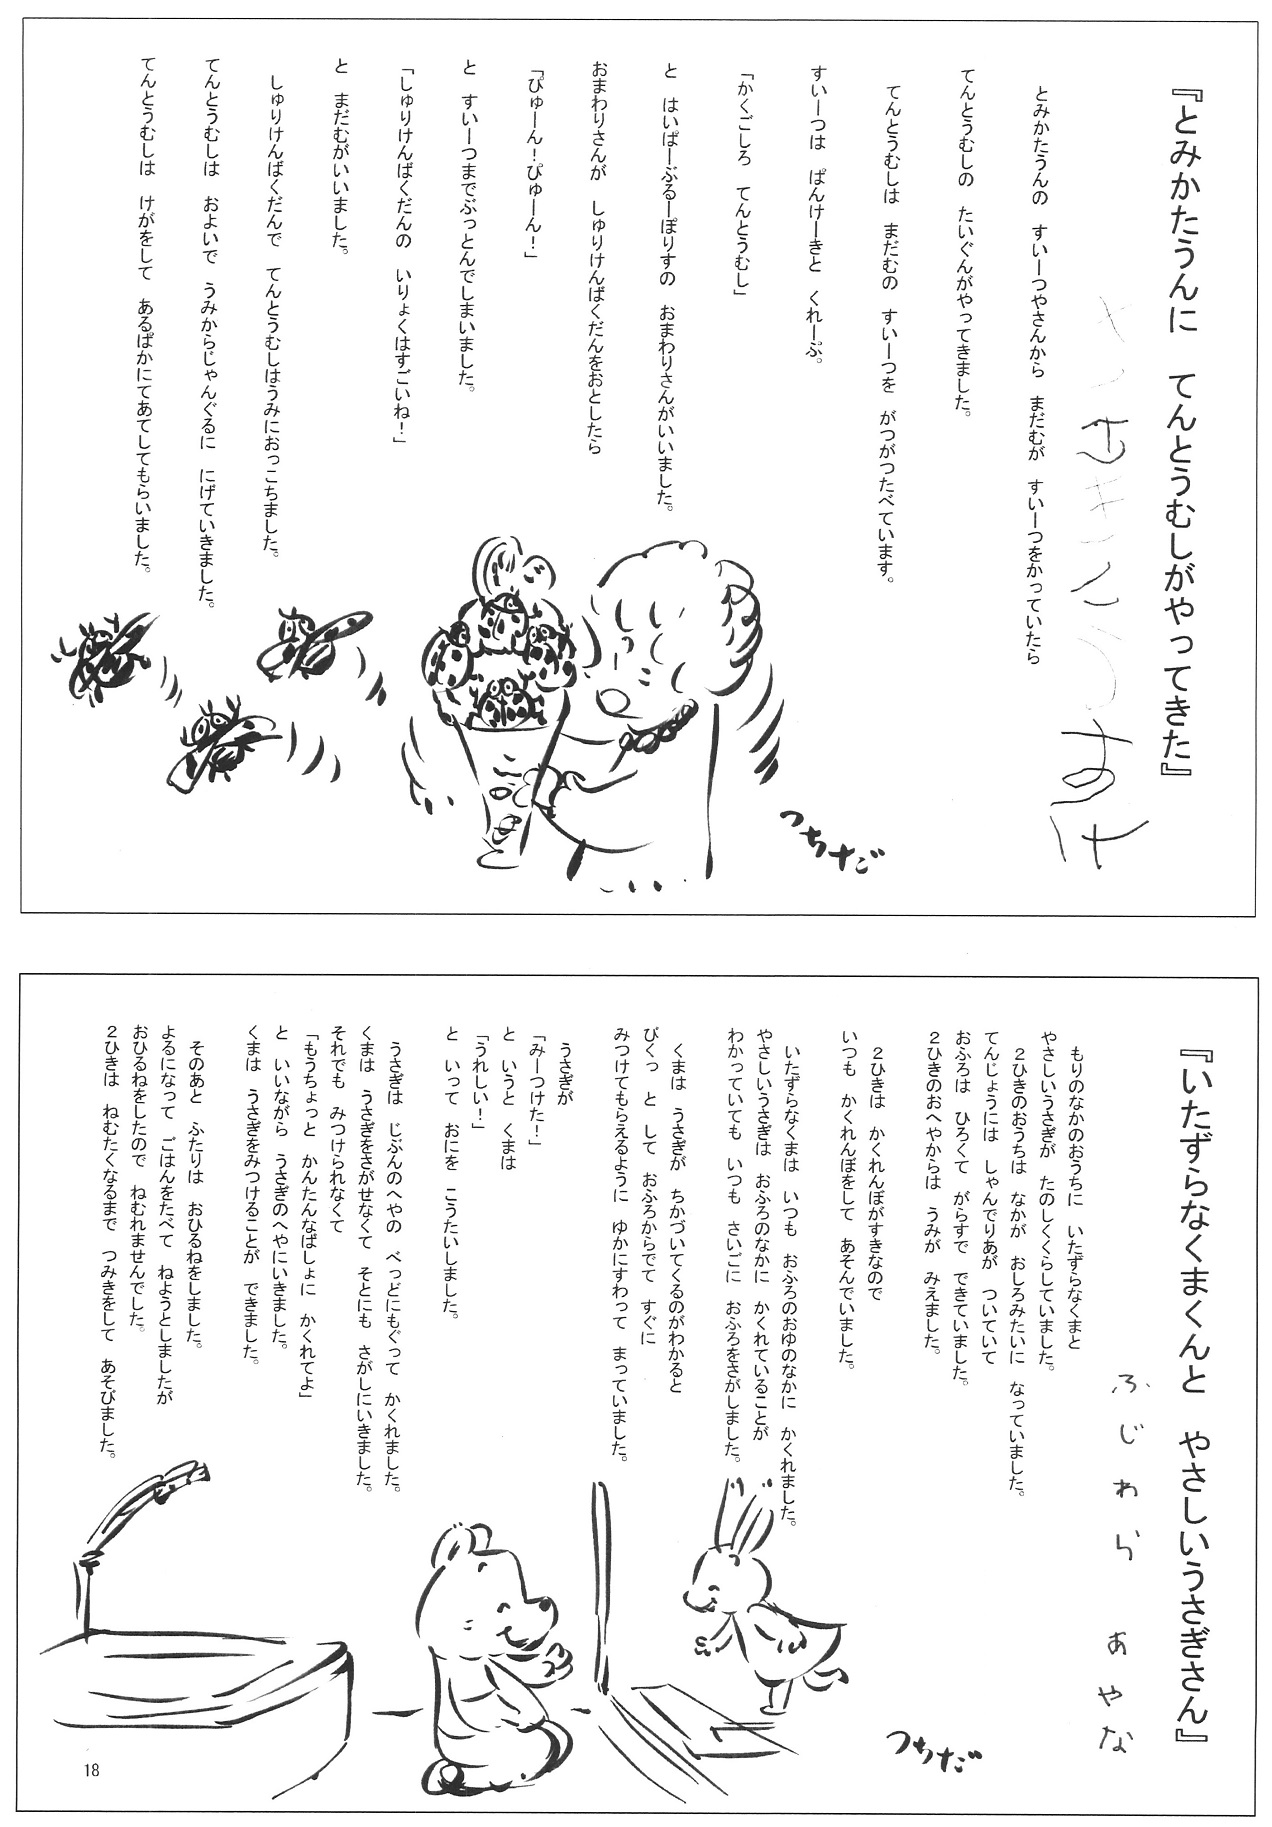 『とみかたうんに　てんとうむしがやってきた』
とみかたうんの　すいーつやさんから　まだむが　すいーつをかっていたら
てんとうむしの　たいぐんがやってきました。
てんとうむしは　まだむの　すいーつを　がつがつたべています。
すいーつは　ぱんけーきと　くれーぷ。
「かくごしろ　てんとうむし」
と　はいぱーぶるーぽりすの　おまわりさんがいいました。
おまわりさんが　しゅりけんばくだんをおとしたら
「ぴゅーん！ぴゅーん！」
と　すいーつまでぶっとんでしまいました。
「しゅりけんばくだんの　いりょくはすごいね！」
と　まだむがいいました。
しゅりけんばくだんで　てんとうむしはうみにおっこちました。
てんとうむしは　およいで　うみからじゃんぐるに　にげていきました。
てんとうむしは　けがをして　あるぱかにてあてしてもらいました。
つちだ
『いたずらなくまくんと　やさしいうさぎさん』
ふじわら　あやな
もりのなかのおうちに　いたずらなくまと
やさしいうさぎが　たのしくくらしていました。
２ひきのおうちは　なかが　おしろみたいに　なっていました。
てんじょうには　しゃんでりあが　ついていて
おふろは　ひろくて　がらすで　できていました。
２ひきのおへやからは　うみが　みえました。
２ひきは　かくれんぼがすきなので
いつも　かくれんぼをして　あそんでいました。
いたずらなくまは　いつも　おふろのおゆのなかに　かくれました。
やさしいうさぎは　おふろのなかに　かくれていることが
わかっていても　いつも　さいごに　おふろをさがしました。
くまは　うさぎが　ちかづいてくるのがわかると
びくっ　と　して　おふろからでて　すぐに
みつけてもらえるように　ゆかにすわって　まっていました。
うさぎが
「みーつけた！」
と　いうと　くまは
「うれしい！」
と　いって　おにを　こうたいしました。
うさぎは　じぶんのへやの　べっどにもぐって　かくれました。
くまは　うさぎをさがせなくて　そとにも　さがしにいきました。
それでも　みつけられなくて
「もうちょっと　かんたんなばしょに　かくれてよ」
と　いいながら　うさぎのへやにいきました。
くまは　うさぎをみつけることが　できました。
そのあと　ふたりは　おひるねをしました。
よるになって　ごはんをたべて　ねようとしましたが
おひるねをしたので　ねむれませんでした。
２ひきは　ねむたくなるまで　つみきをして　あそびました。
つちだ
18